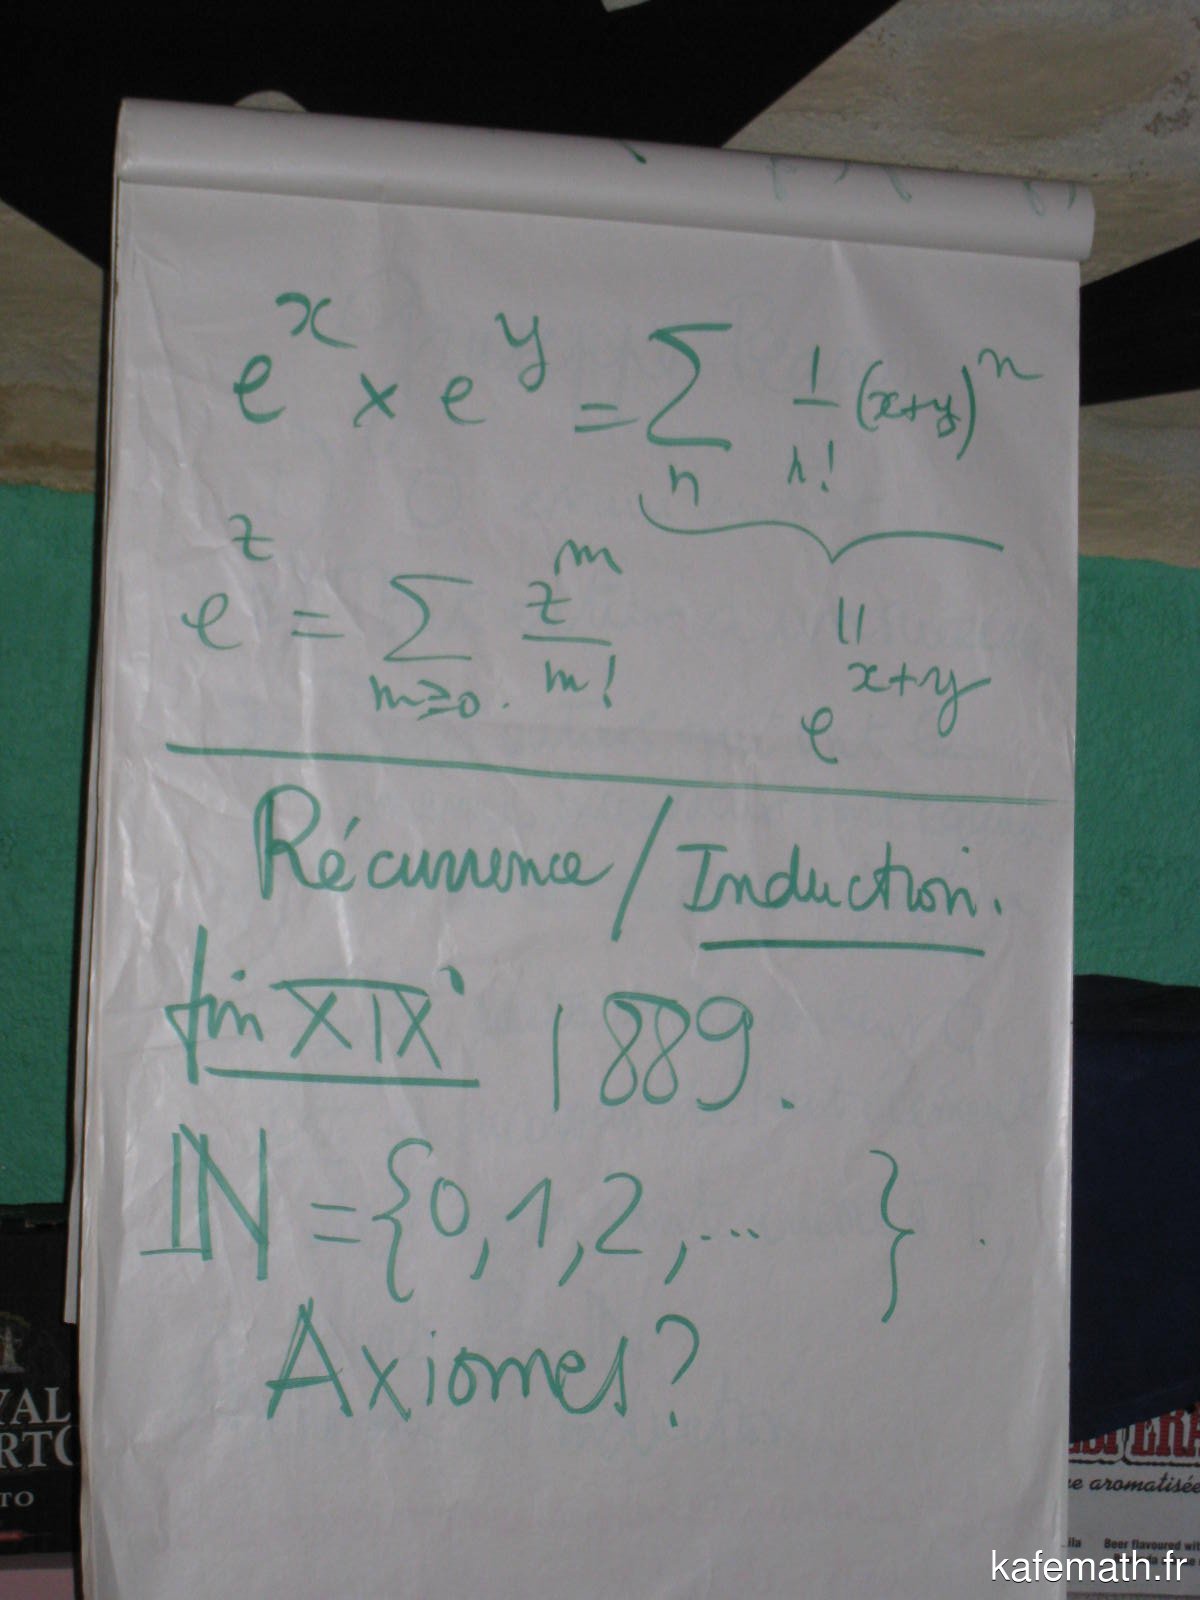 e^x × e^y = ∑_n 1/n! (x+y)^n
e^z = ∑_{m≥0} z^m/m!
||
e^{x+y}
Récurrence / Induction.
fin XIXe 1889.
ℕ = {0, 1, 2, ... }
Axiomes?
TO
e aromatisée
Beer flavoured
kafemath.fr